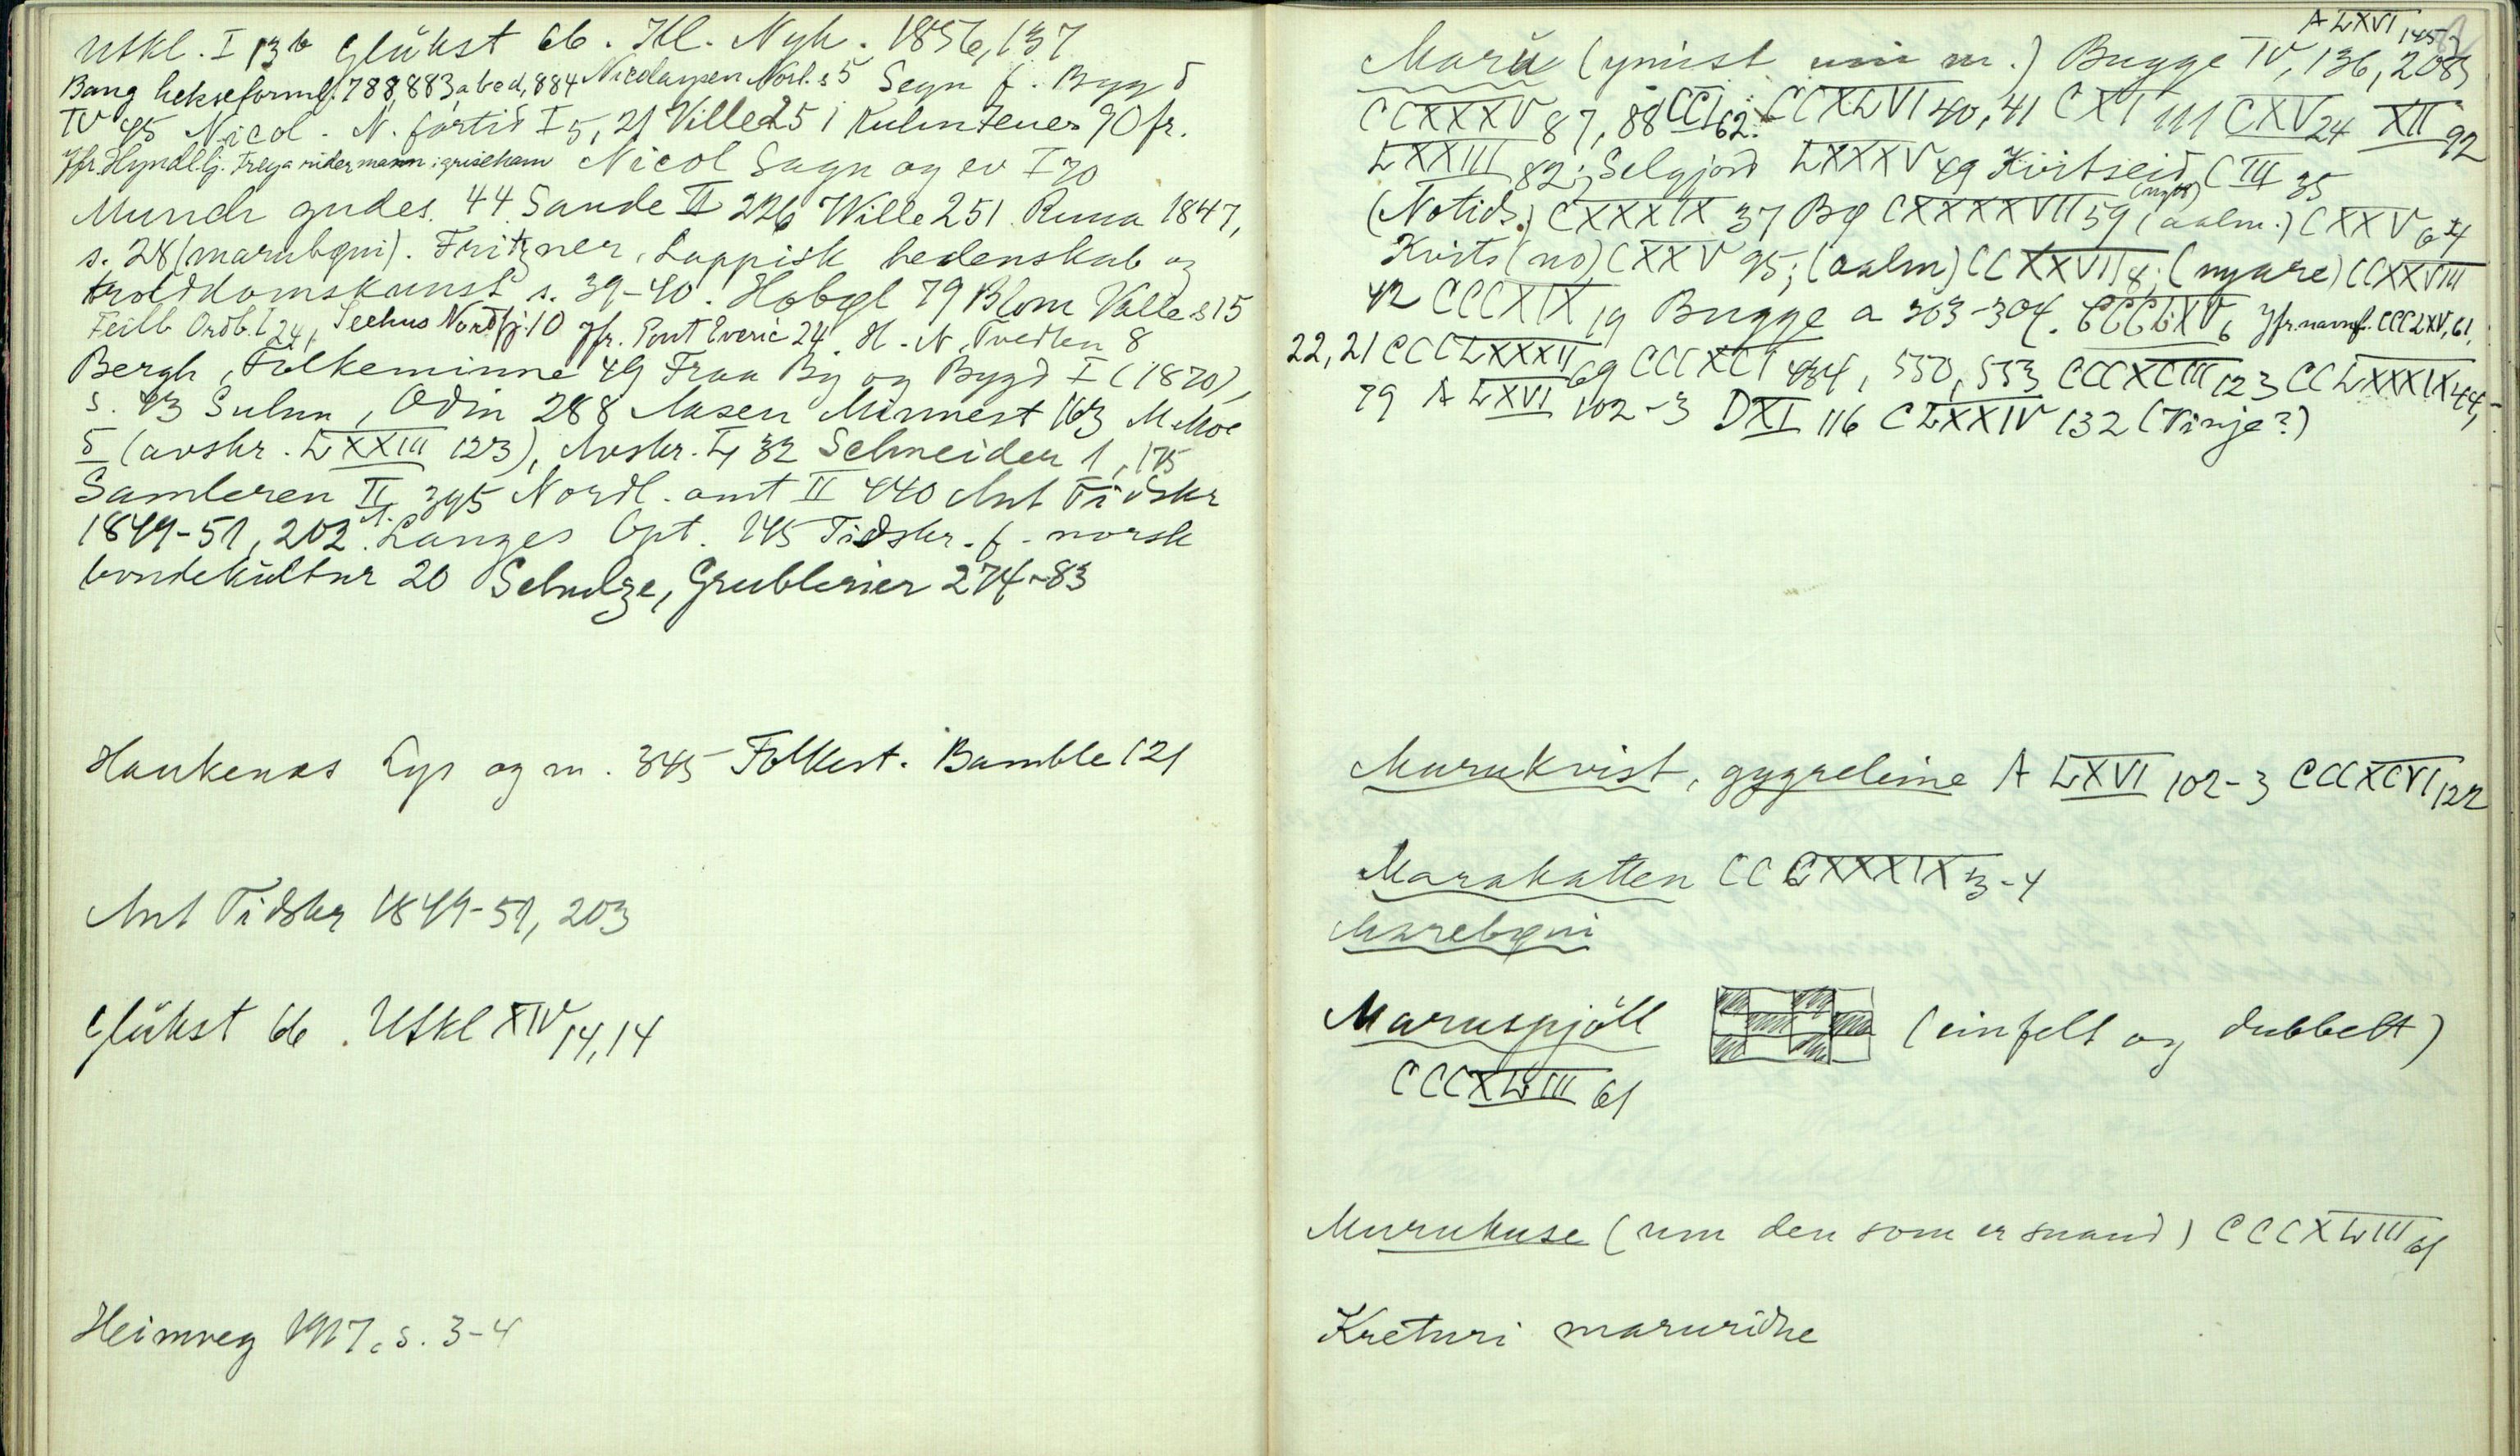 Uskl. I 13b Glükst 66. Ill. Nyh. 1856, 137
Bang hekseforml. 788, 883 abcd, 884 Nicolaysen Norl. s 5 Segn f. Bygd
IV 95 Nicol. N. fortid I 5, 21 Wille 251 Kuhn Feuer 90 fr.
Jfr. Hyndllj. Freya rider mann i griseham Nicol Sagn og ev I 70
Munch gudes. 44 Sande II 226 Wille 251 Runa 1847,
s. 28 (marubqni). Fritzner, Lappisk hedenskab og
trolddomskunst s. 39-40. Hobgl 79 Blom Valle s 15
Feilb Ordb. I 24, Seehus Nordfj. 10 Jfr. Pont Everic 24 H. N. Tvedten 8
Bergh, Folkeminne 49 Fraa By og Bygd I (1870),
s. 43 Suhm, Odin 288 Aasen Minnest 163 M. Moe
5 (avskr. LXXIII 123), Avskr. L, 32 Schneider 1, 175
Samleren II 395 Nordl. amt II 440 Ant Tidskr
1849-51, 202. Langes Opt. 145 Tidskr. f. norsk
bondekultur 20 Schulze, Grublerier 274-83
Haukenæs Lys og m. 345 Folkest. Bamble 121
Ant Tidskr 1849-51, 203
Glükst 66. Uskl XIV 14, 14
Heimveg 1917, s. 3-4
A LXVI 145
Maru (ymist um m.) Bugge IV, 136, 208
CCXXXV 87, 88 CCI 62. CCXLVI 40, 41 CXI 111 CXV 24 XII 92
LXXIII 82; Selgjord LXXXV 49 Kvitseid CIII 35
(Notids.) CXXXIX 37 Bø CXXXXVII 59 (aalm.) CXXV 64
Kvits (no) CXXV 95; (aalm) CCXXVII 8; (nyare) CCXXVIII
42 CCCXIX 19 Bugge a 303-304. CCCLXV 6 Jfr. namnf. CCCLXV, 61,
22, 21 CCCLXXXII 69 CCCXCI 484, 550, 553 CCCXCIII 123 CCLXXXIX 44,
79 A LXVI 102-3 DXI 116 CLXXIV 132 (Vinje?)
Marukvist, gygreleime A LXVI 102-3 CCCXCVI 122
Marakatten CCCXXXIX 3-4
Marebqni
Maruspjöll (einfelt og dubbelt)
CCCXLVIII 61
Marukuse (um den som er snaud) CCCXLVIII 61
Kreturi maruridne